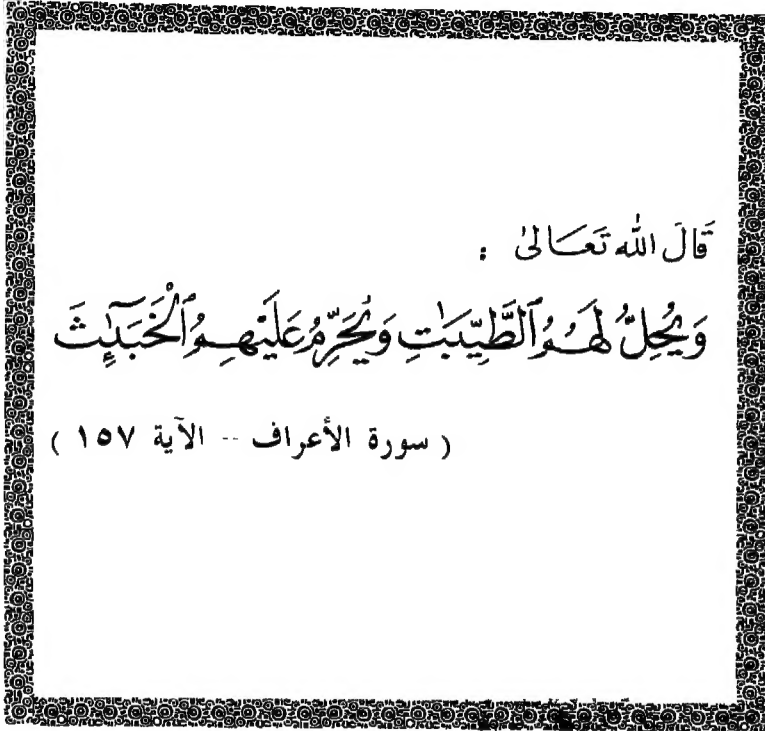 قَالَ اللّٰه تَعَـالىٰ :
وَيُحِلُّ لَهُمُ ٱلطَّيِّبَٰتِ وَيُحَرِّمُ عَلَيْهِمُ ٱلْخَبَٰٓئِثَ
( سورة الأعراف -- الآية ١٥٧ )